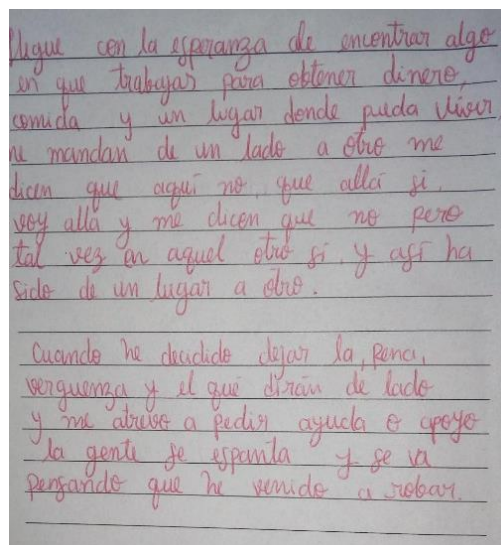 llegue con la esperanza de encontrar algo
en que trabajar para obtener dinero,
comida y un lugar donde pueda vivir,
me mandan de un lado a otro me
dicen que aquí no, que allá si,
voy allá y me dicen que no pero
tal vez en aquel otro si, y así ha
sido de un lugar a otro.
Cuando he decidido dejar la, pena,
verguenza y el qué dirán de lado
y me atrevo a pedir ayuda o apoyo
la gente se espanta y se va
pensando que he venido a robar.